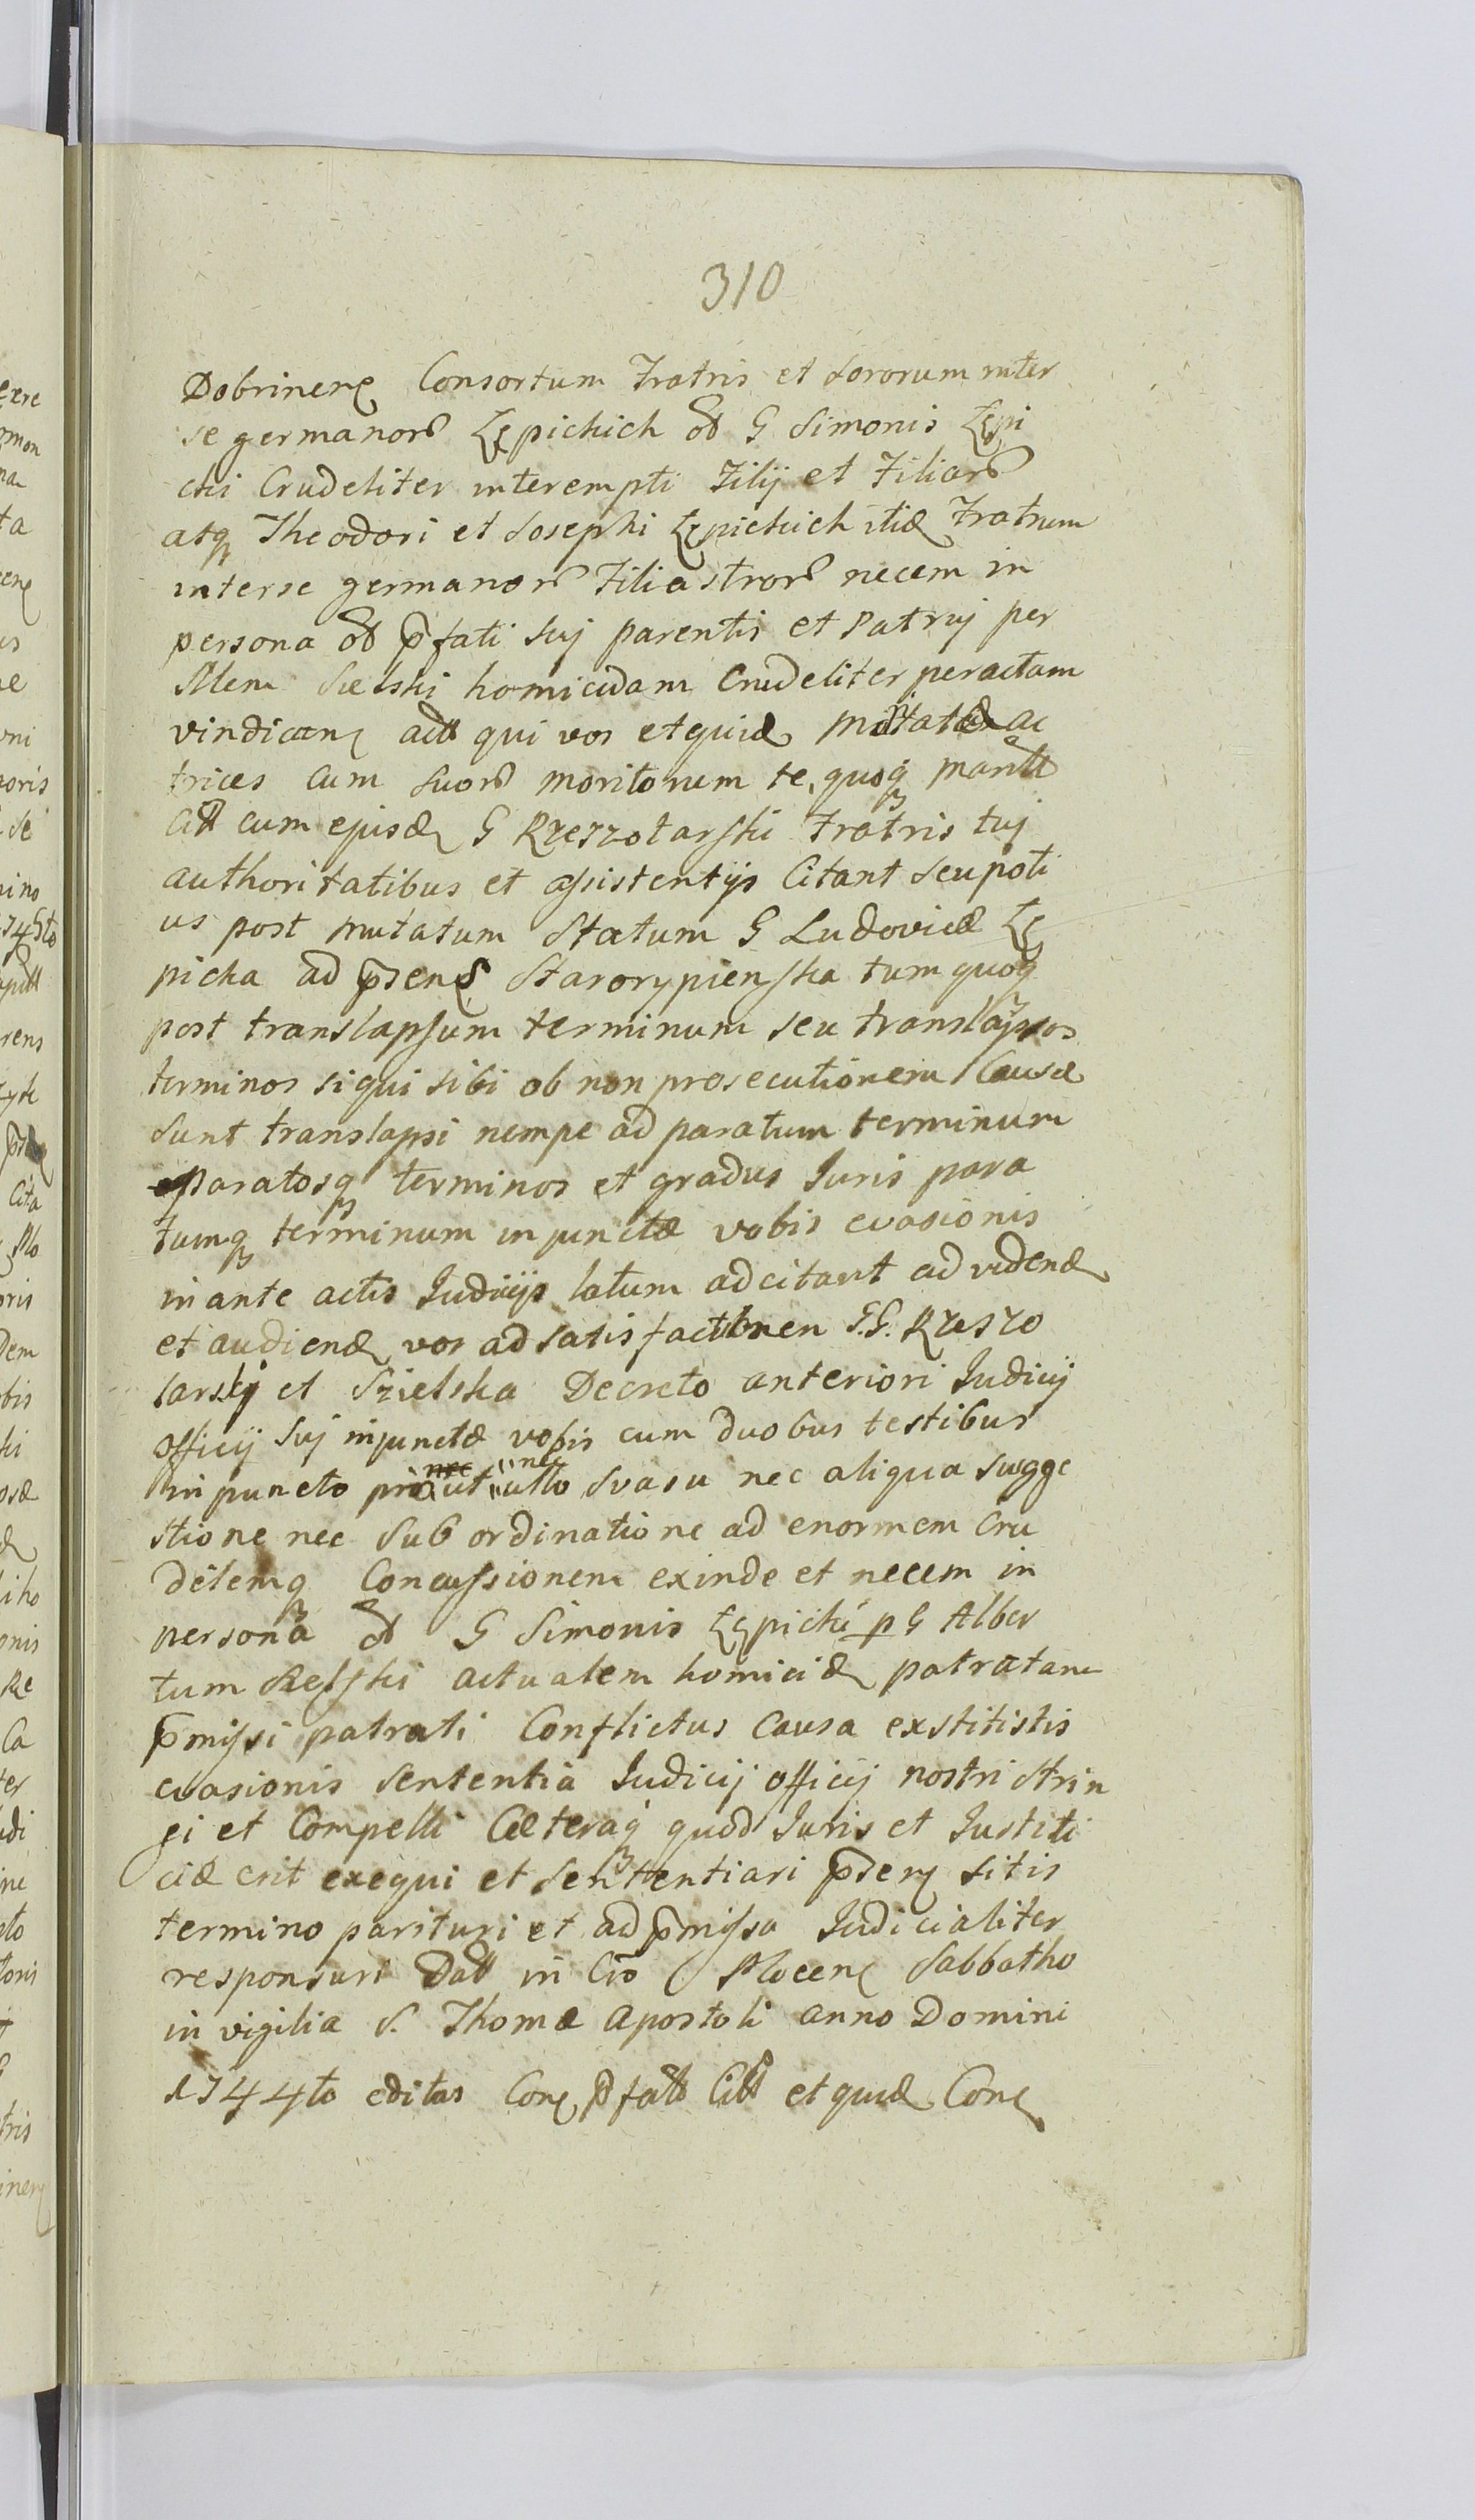 310
Dobrinenę Consortum Fratris et Sororum inter
se germanorū Łępickich ōd G Simonis Łępi
cki Crudeliter interempti Filij et Filiarū
atq Theodori et Josephi Łępickich itidē Fratrum
interse germanorū Filiastrorū necem in
persona ōd p̄fati suj parentis et Patruj per
Sielski homicidam Crudeliter peractam
vindicanę actt qui vos etquidē ac
trices cum suorū maritorum te quoq
citt cum ejusdē G Rzeszotarski Fratris tuj
authoritatibus et assistentijs Citant seu poti
us post mutatum Statum G Ludovicæ Łę
picka ad p̄senę Starorypienska tum quoq
post translapsum terminum seu translapsos
terminos siqui sibi ob non prosecutionem Causæ
sunt translapsi nempe ad paratum terminum
paratosq terminos et gradus Juris para
tumq terminum injunctæ vobis evasionis
in ante actis Judicijs latum adcitant ad videnđ
et audienđ vos ad satisfactionen G.G. Rzeszo
tarskj et Szielska Decreto anteriori Judicij
officij suj injunctæ vobis cum duobus testibus
in puncto nec ullo svasu nec aliqua sugge
stione nec sub ordinatione ad enormem cru
delemq Concussionem exinde et necem in
persona ōd G Simonis Łępicki p G Alber
tum Sielski actualem homicidā patratam
p̄missi patrati Conflictus causa exstitistis
evasionis sententia Judicij officij nostri strin
gi et Compelli Cæteraq quod Juris et Justiti
ciæ erit exequi et sententiari p̄senę sitis
termino parituri et ad p̄missa Judicialiter
responsuri Datt in Crō Plocenę Sabbatho
in vigilia S. Thomæ Apostoli anno Domini
1744to editas Conę p̄fatt Citt et quidē Conę